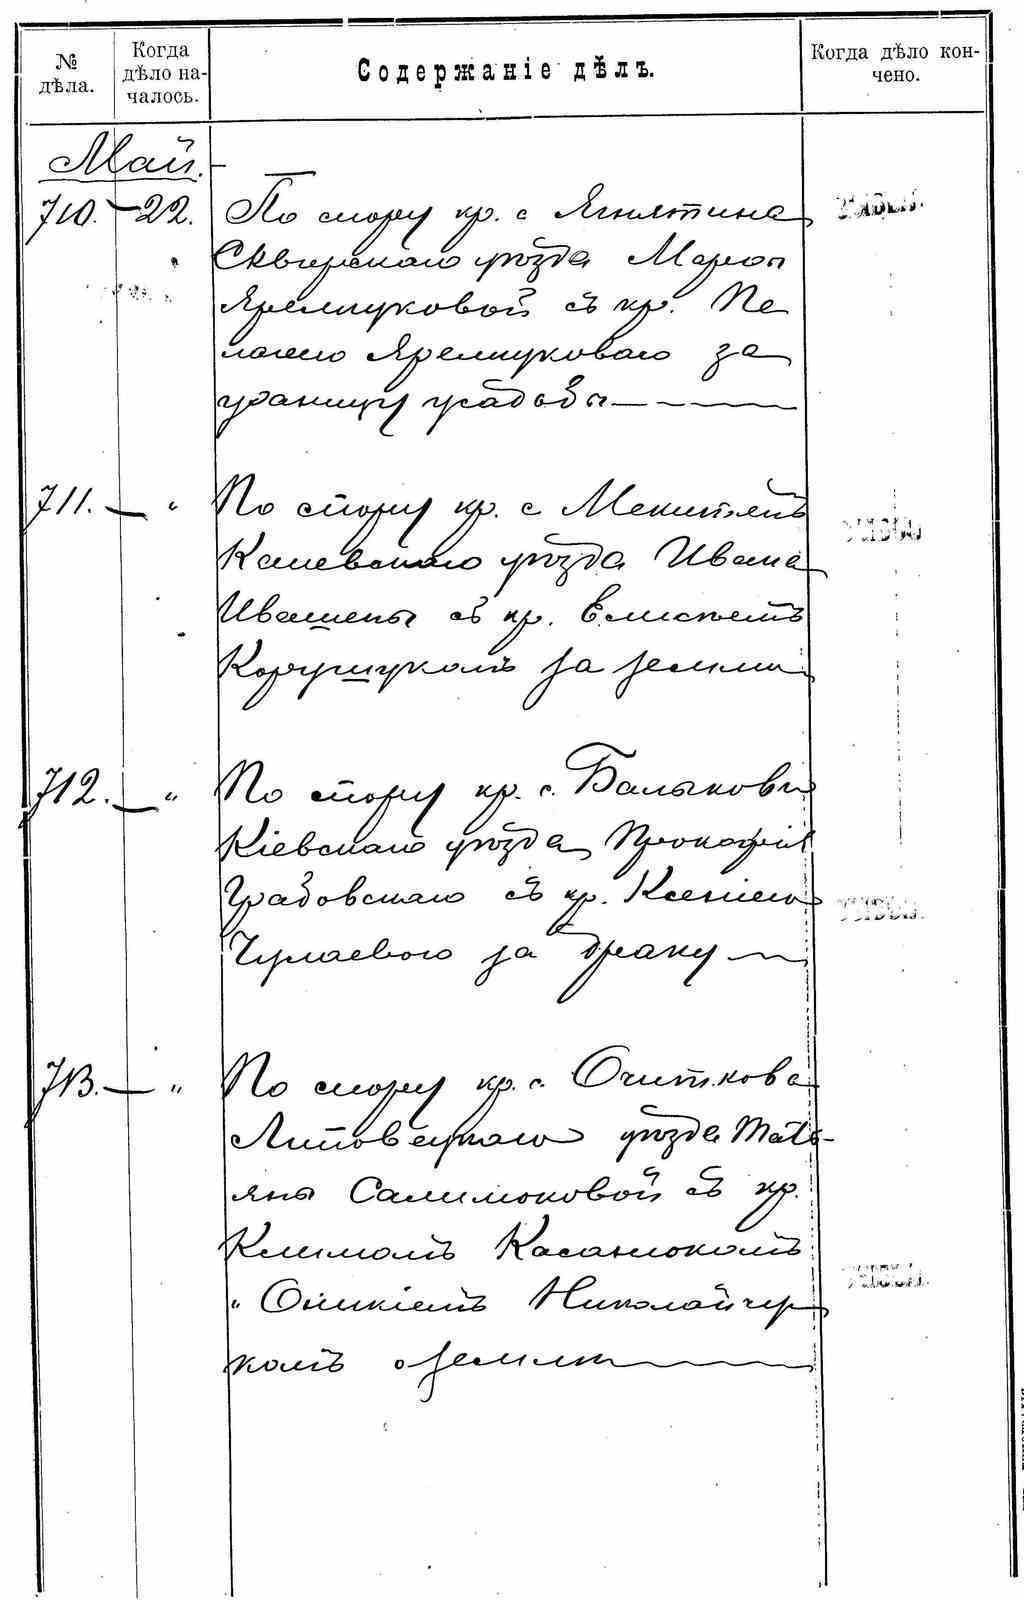 № дѣла.
Когда дѣло началось.
Содержаніе дѣлъ.
Когда дѣло кончено.
Май.
710. 22. По спору кр. с Ягнятина
Сквирскаго уѣзда Марфы
Яремчуковой съ кр. Пе
лагею Яремчуковою за
границу усадьбы
711. " По спору кр. с.
Каневскаго уѣзда Ивана
Ивашены съ кр. Елисѣемъ
за землю
712. " По спору кр. с. Балыковки
Кіевскаго уѣзда Прокофія
Грабовскаго съ кр. Ксеніею
Чулаевою за
713. " По спору кр. с. Очиткова
Липовецкаго уѣзда Тать-
яны Салимоновой съ кр.
Климомъ Касанюкомъ
Николайчу
комъ о землѣ